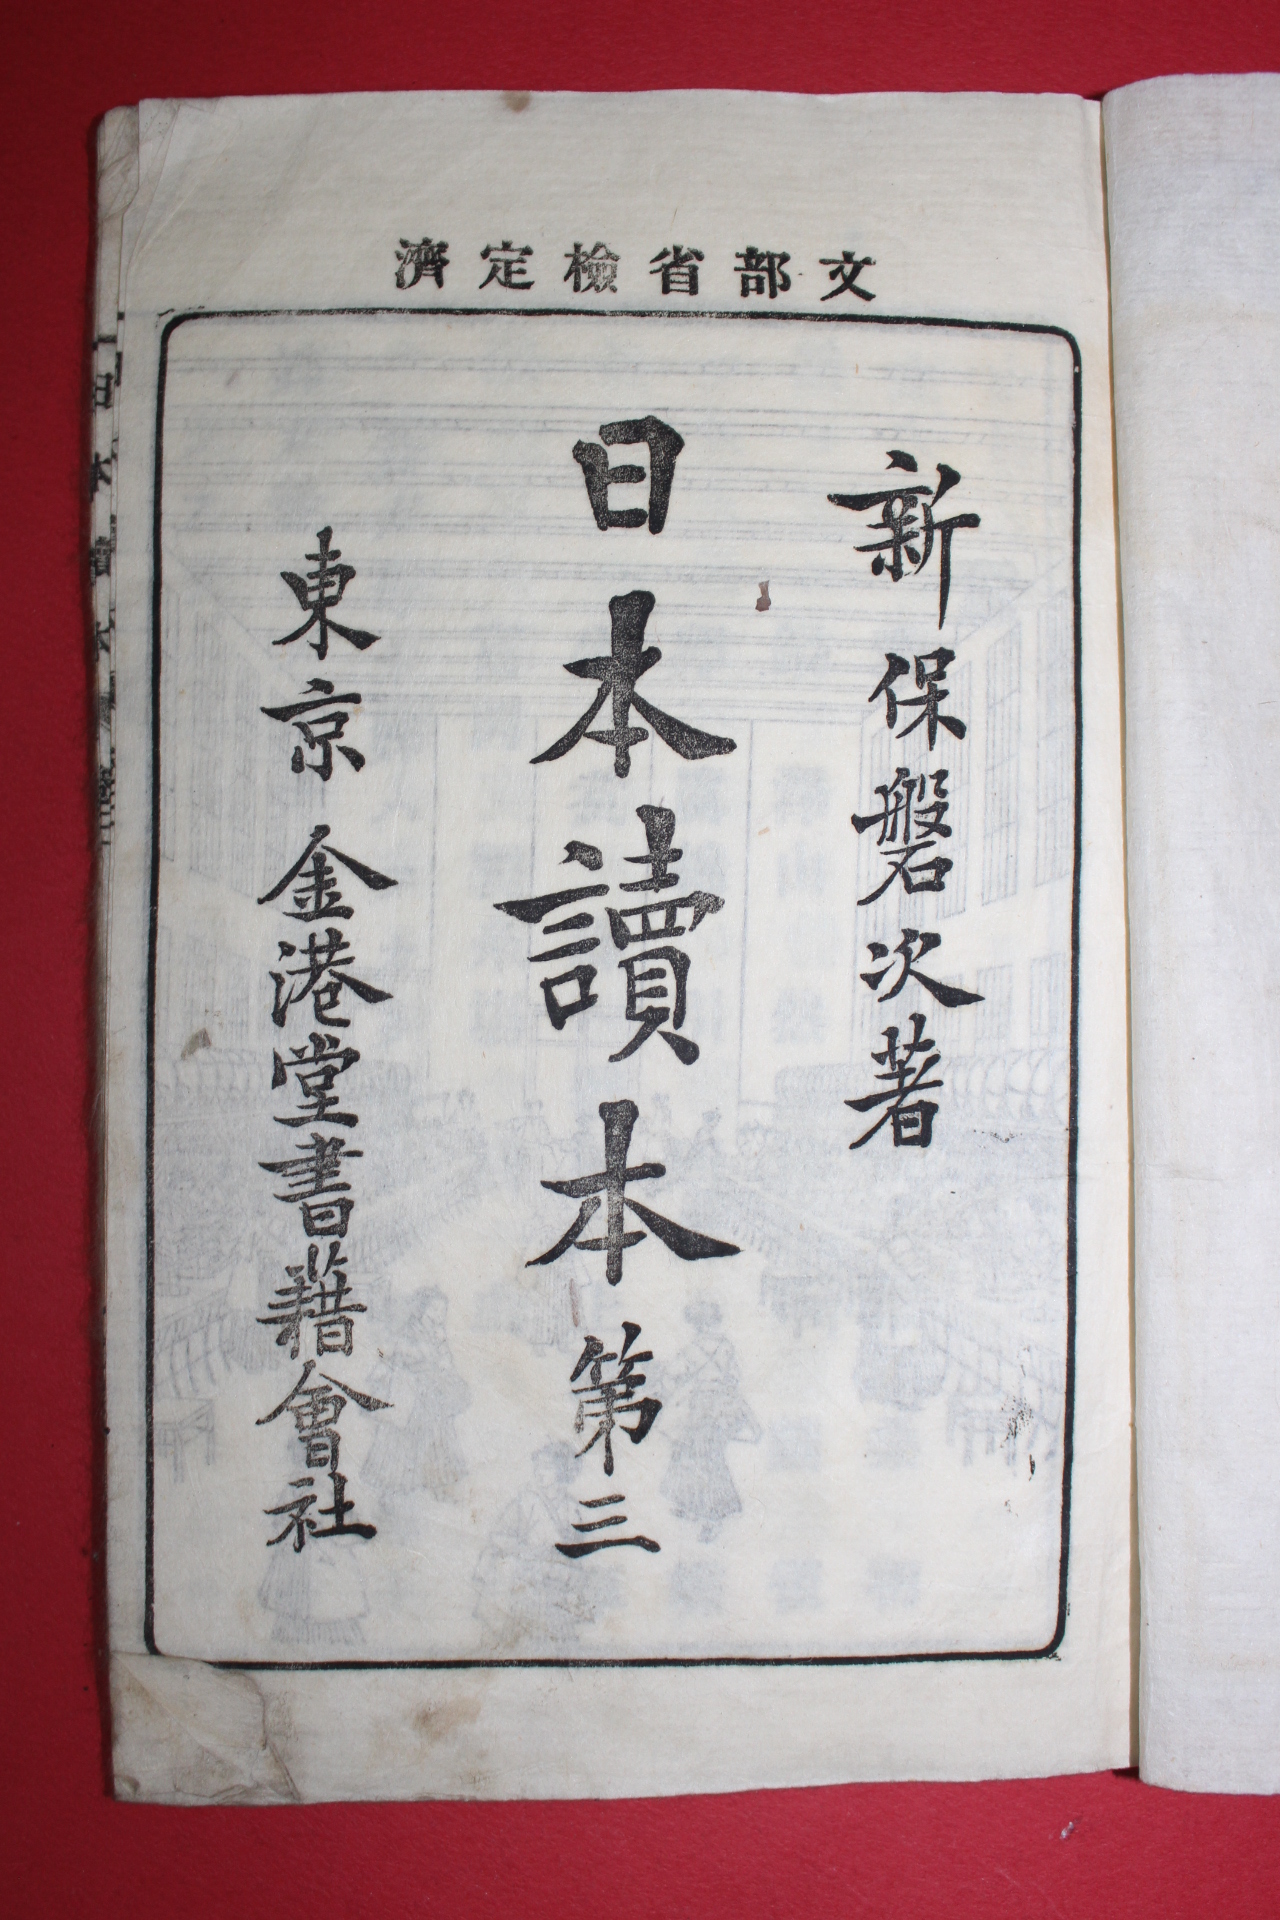 文部省檢定濟
新保磐次著
日本讀本第三
東京金港堂書籍會社
日本讀本